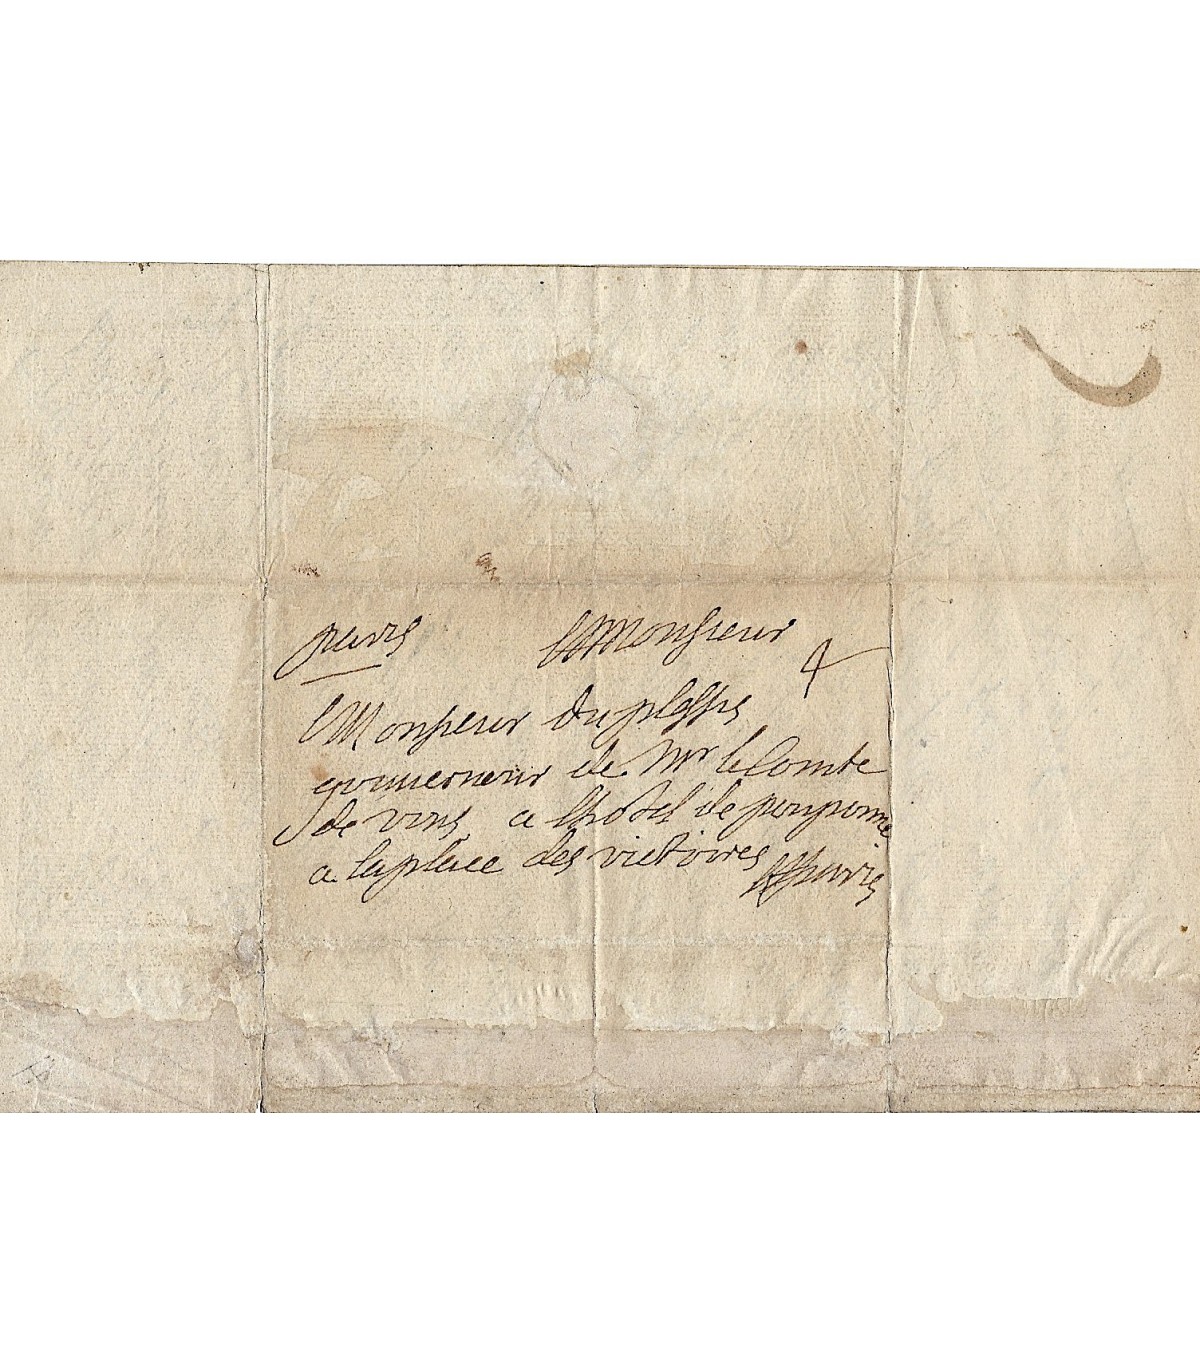 paris Monsieur
4
Monsieur duplessis
gouuerneur de Mr le Comte
de vins a lhotel de pomponne
a la place des victoires
A paris